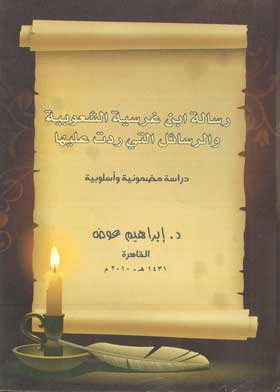 رسالة ابن غرسية الشعوبية
والرسائل التي ردت عليها
دراسة مضمونية وأسلوبية
د. إبراهيم عوض
القاهرة
١٤٣١ هـ - ٢٠١٠ م